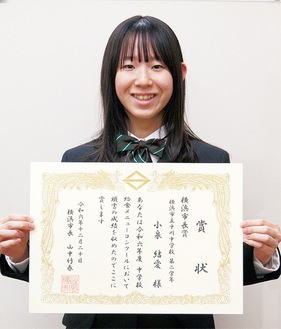 賞状
横浜市長賞
横浜市立平川中学校 第二学年
小泉 結愛 様
あなたは令和六年度 中学校
給食メニューコンクールにおいて
頭書の成績を収めたのでここに
賞します
令和六年十二月二十日
横浜市長 山中竹春